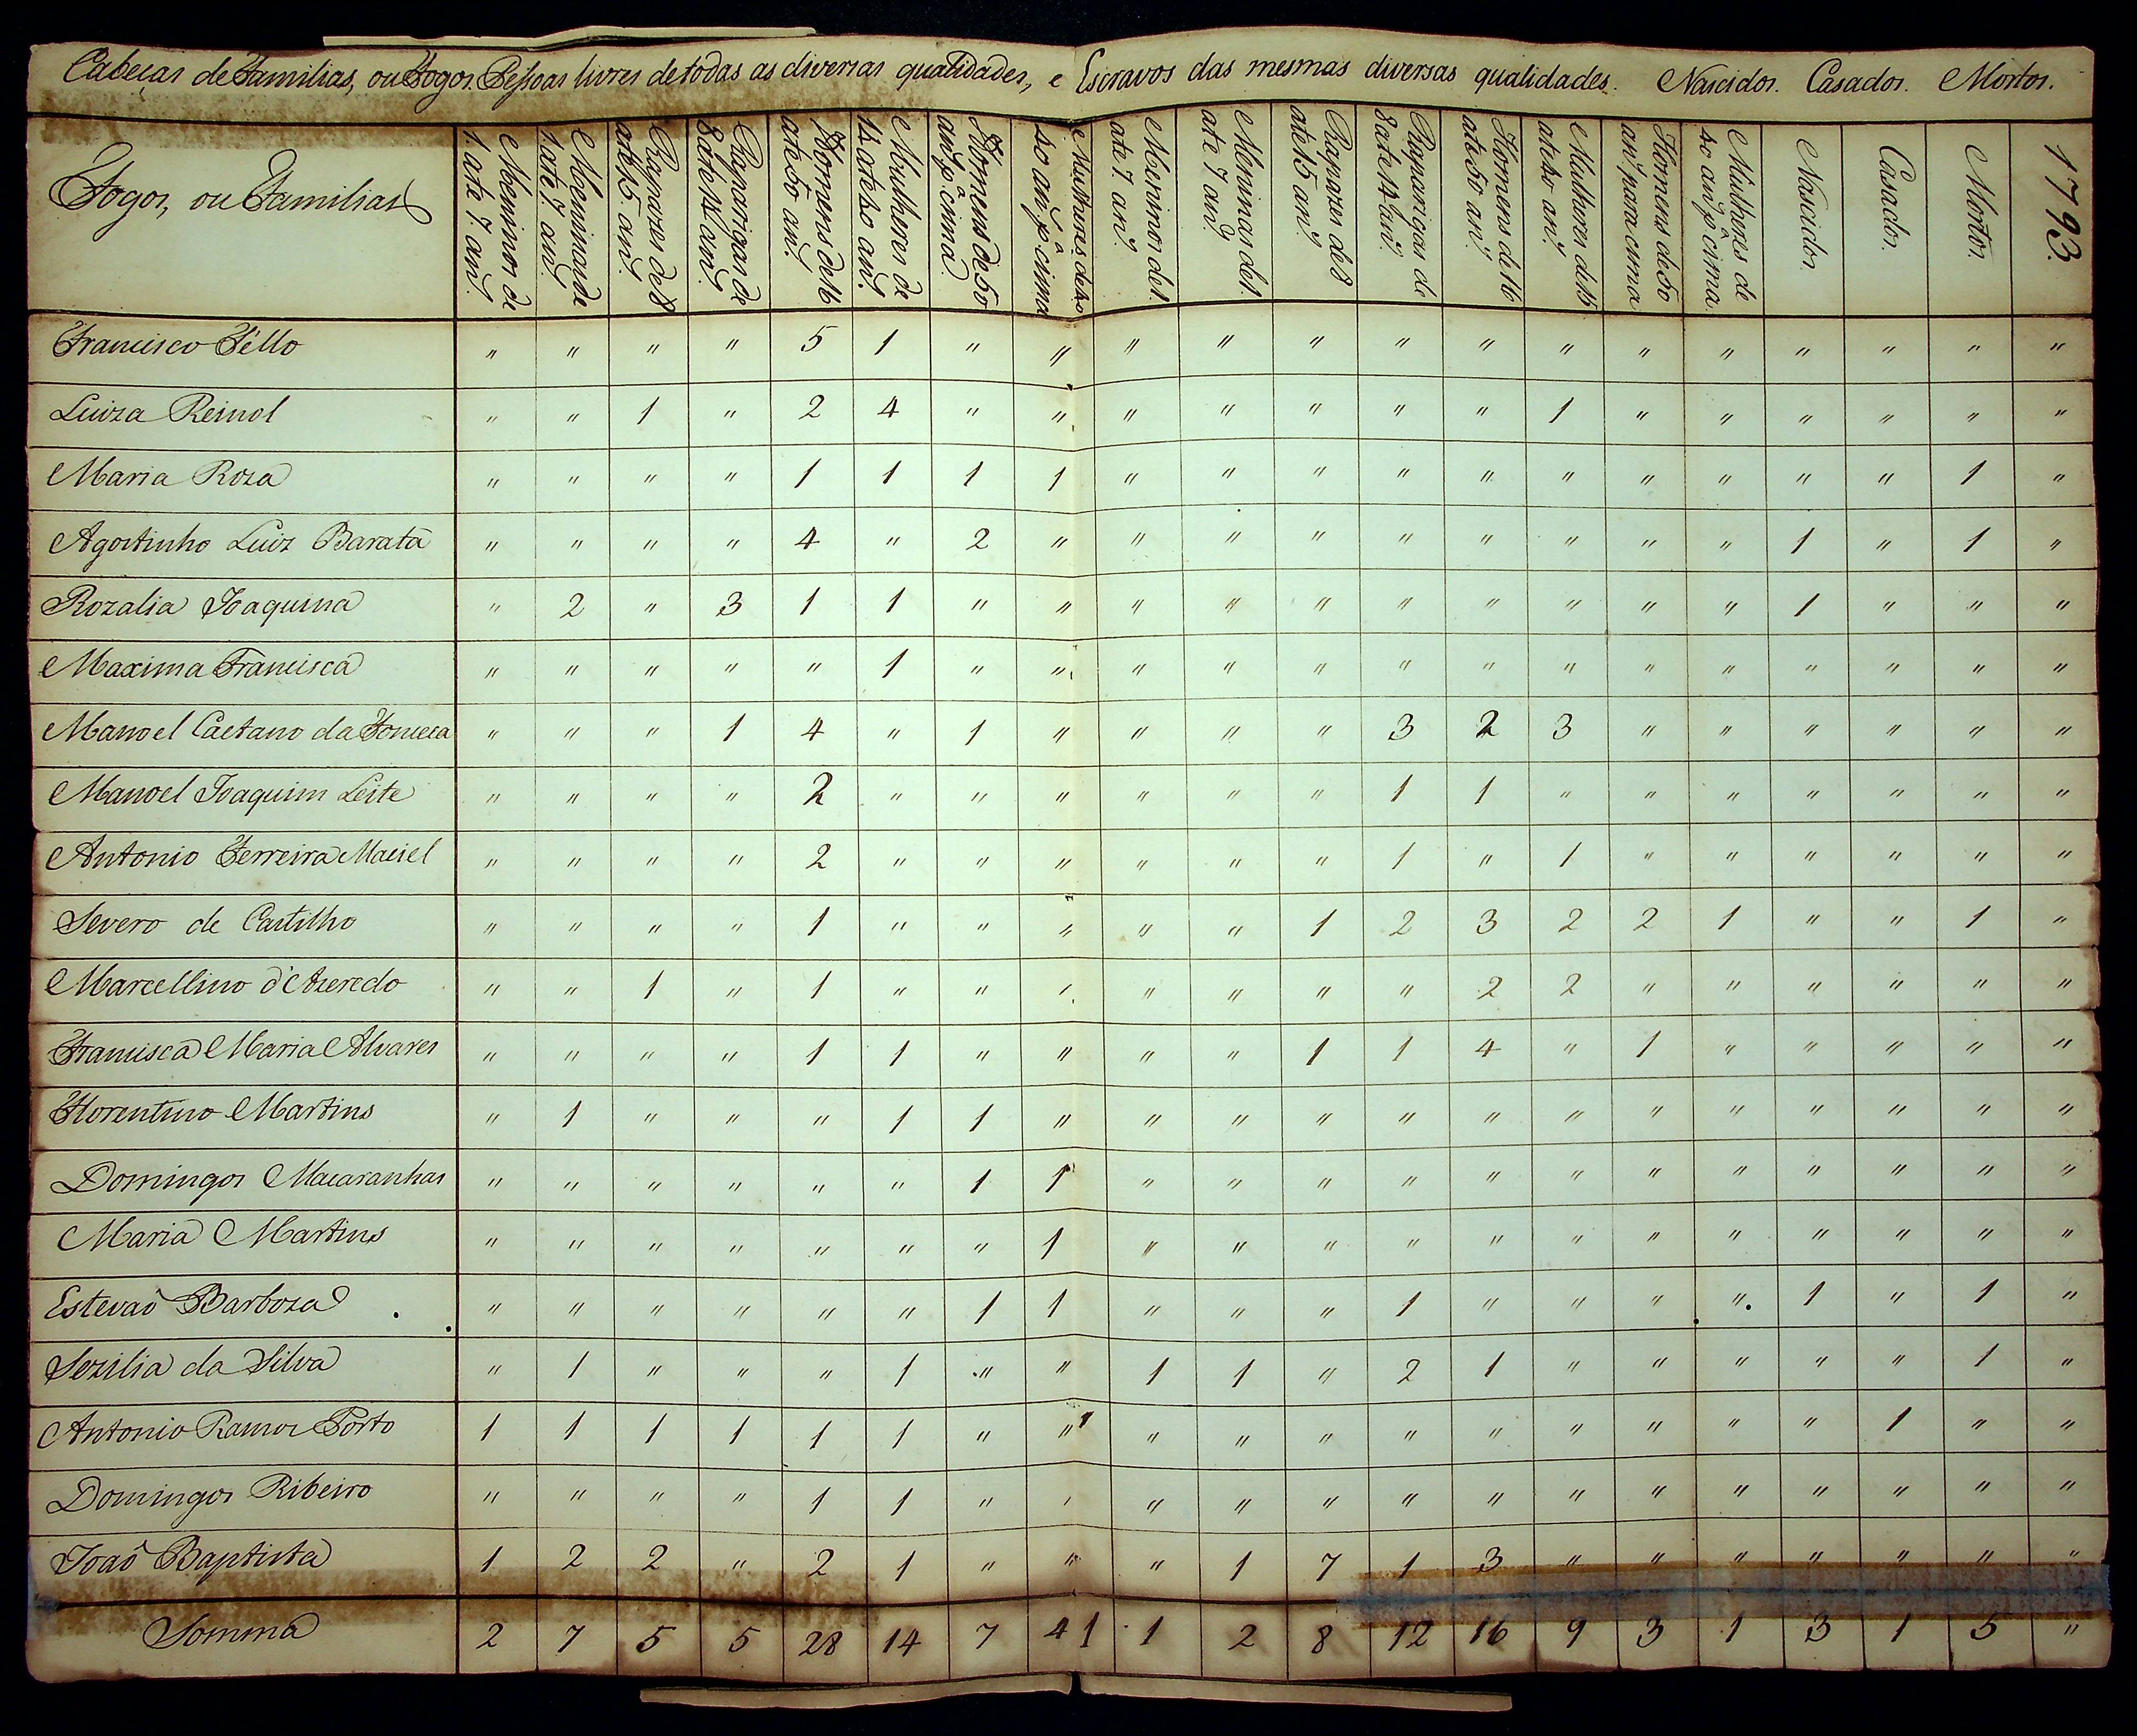 Cabeças de Familias, ou Fogos. Pessoas livres de todas as diversas qualidades, e Escravos das mesmas diversas qualidades. Nascidos. Casados. Mortos.
Fogos, ou Familias
Meninos de 1. ate 7. an.ˢ
Meninas de 1. ate 7 an.ˢ
Rapazes de 8 ate 15 an.ˢ
Raparigas de 8 ate 14 an.ˢ
Homens de 16 ate 50 an.ˢ
Mulheres de 15 ate 40 an.ˢ
Homens de 50 an.ˢ p.ª cima
e Mulheres de 40 40 an.ˢ p.ª cima
Meninos de 1. ate 7 an.ˢ
Meninas de 1 ate 7 an.ˢ
Rapazes de 8 ate 15 an.ˢ
Raparigas de 8 ate 14 an.ˢ
Homens de 16 ate 50 an.ˢ
Mulheres de 15 ate 40 an.ˢ
Homens de 50 an.ˢ para cima
Mulheres de 40 an.ˢ p.ª cima.
Nascidos.
Casados.
Mortos.
1793.
Francisco Tello " " " " 5 1 " " " " " " " " " " " " " "
Luiza Reinol " " 1 " 2 4 " " " " " " " 1 " " " " " "
Maria Roza " " " " 1 1 1 1 " " " " " " " " " " 1 "
Agostinho Luiz Barata " " " " 4 " 2 " " " " " " " " " 1 " 1 "
Rozalia Joaquina " 2 " 3 1 1 " " " " " " " " " " 1 " " "
Maxima Francisca " " " " " 1 " " " " " " " " " " " " " "
Manoel Caetano da Fonceca " " " 1 4 " 1 " " " " 3 2 3 " " " " " "
Manoel Joaquim Leite " " " " 2 " " " " " " 1 1 " " " " " " "
Antonio Ferreira Maciel " " " " 2 " " " " " " 1 " 1 " " " " " "
Severo de Castilho " " " " 1 " " " " " 1 2 3 2 2 1 " " 1 "
Marcellino d'Azeredo " " 1 " 1 " " " " " " " 2 2 " " " " " "
Francisca Maria Alvares " " " " 1 1 " " " " 1 1 4 " 1 " " " " "
Florentino Martins " 1 " " " 1 1 " " " " " " " " " " " " "
Domingos Macaranhas " " " " " " 1 1 " " " " " " " " " " " "
Maria Martins " " " " " " " 1 " " " " " " " " " " " "
Estevaõ Barboza " " " " " " 1 1 " " " 1 " " " " 1 " 1 "
Sezilia da Silva " 1 " " " 1 " " 1 1 " 2 1 " " " " " 1 "
Antonio Ramos Porto 1 1 1 1 1 1 " " 1 " " " " " " " " " 1 " "
Domingos Ribeiro " " " " 1 1 " " " " " " " " " " " " " "
Joaõ Baptista 1 2 2 " 2 1 " " " 1 7 1 3 " " " " " " "
Somma 2 7 5 5 28 14 7 4 1 1 2 8 12 16 9 3 1 3 1 5 "